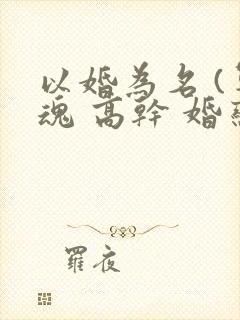 以婚為名(
魂 高幹 婚
羅夜